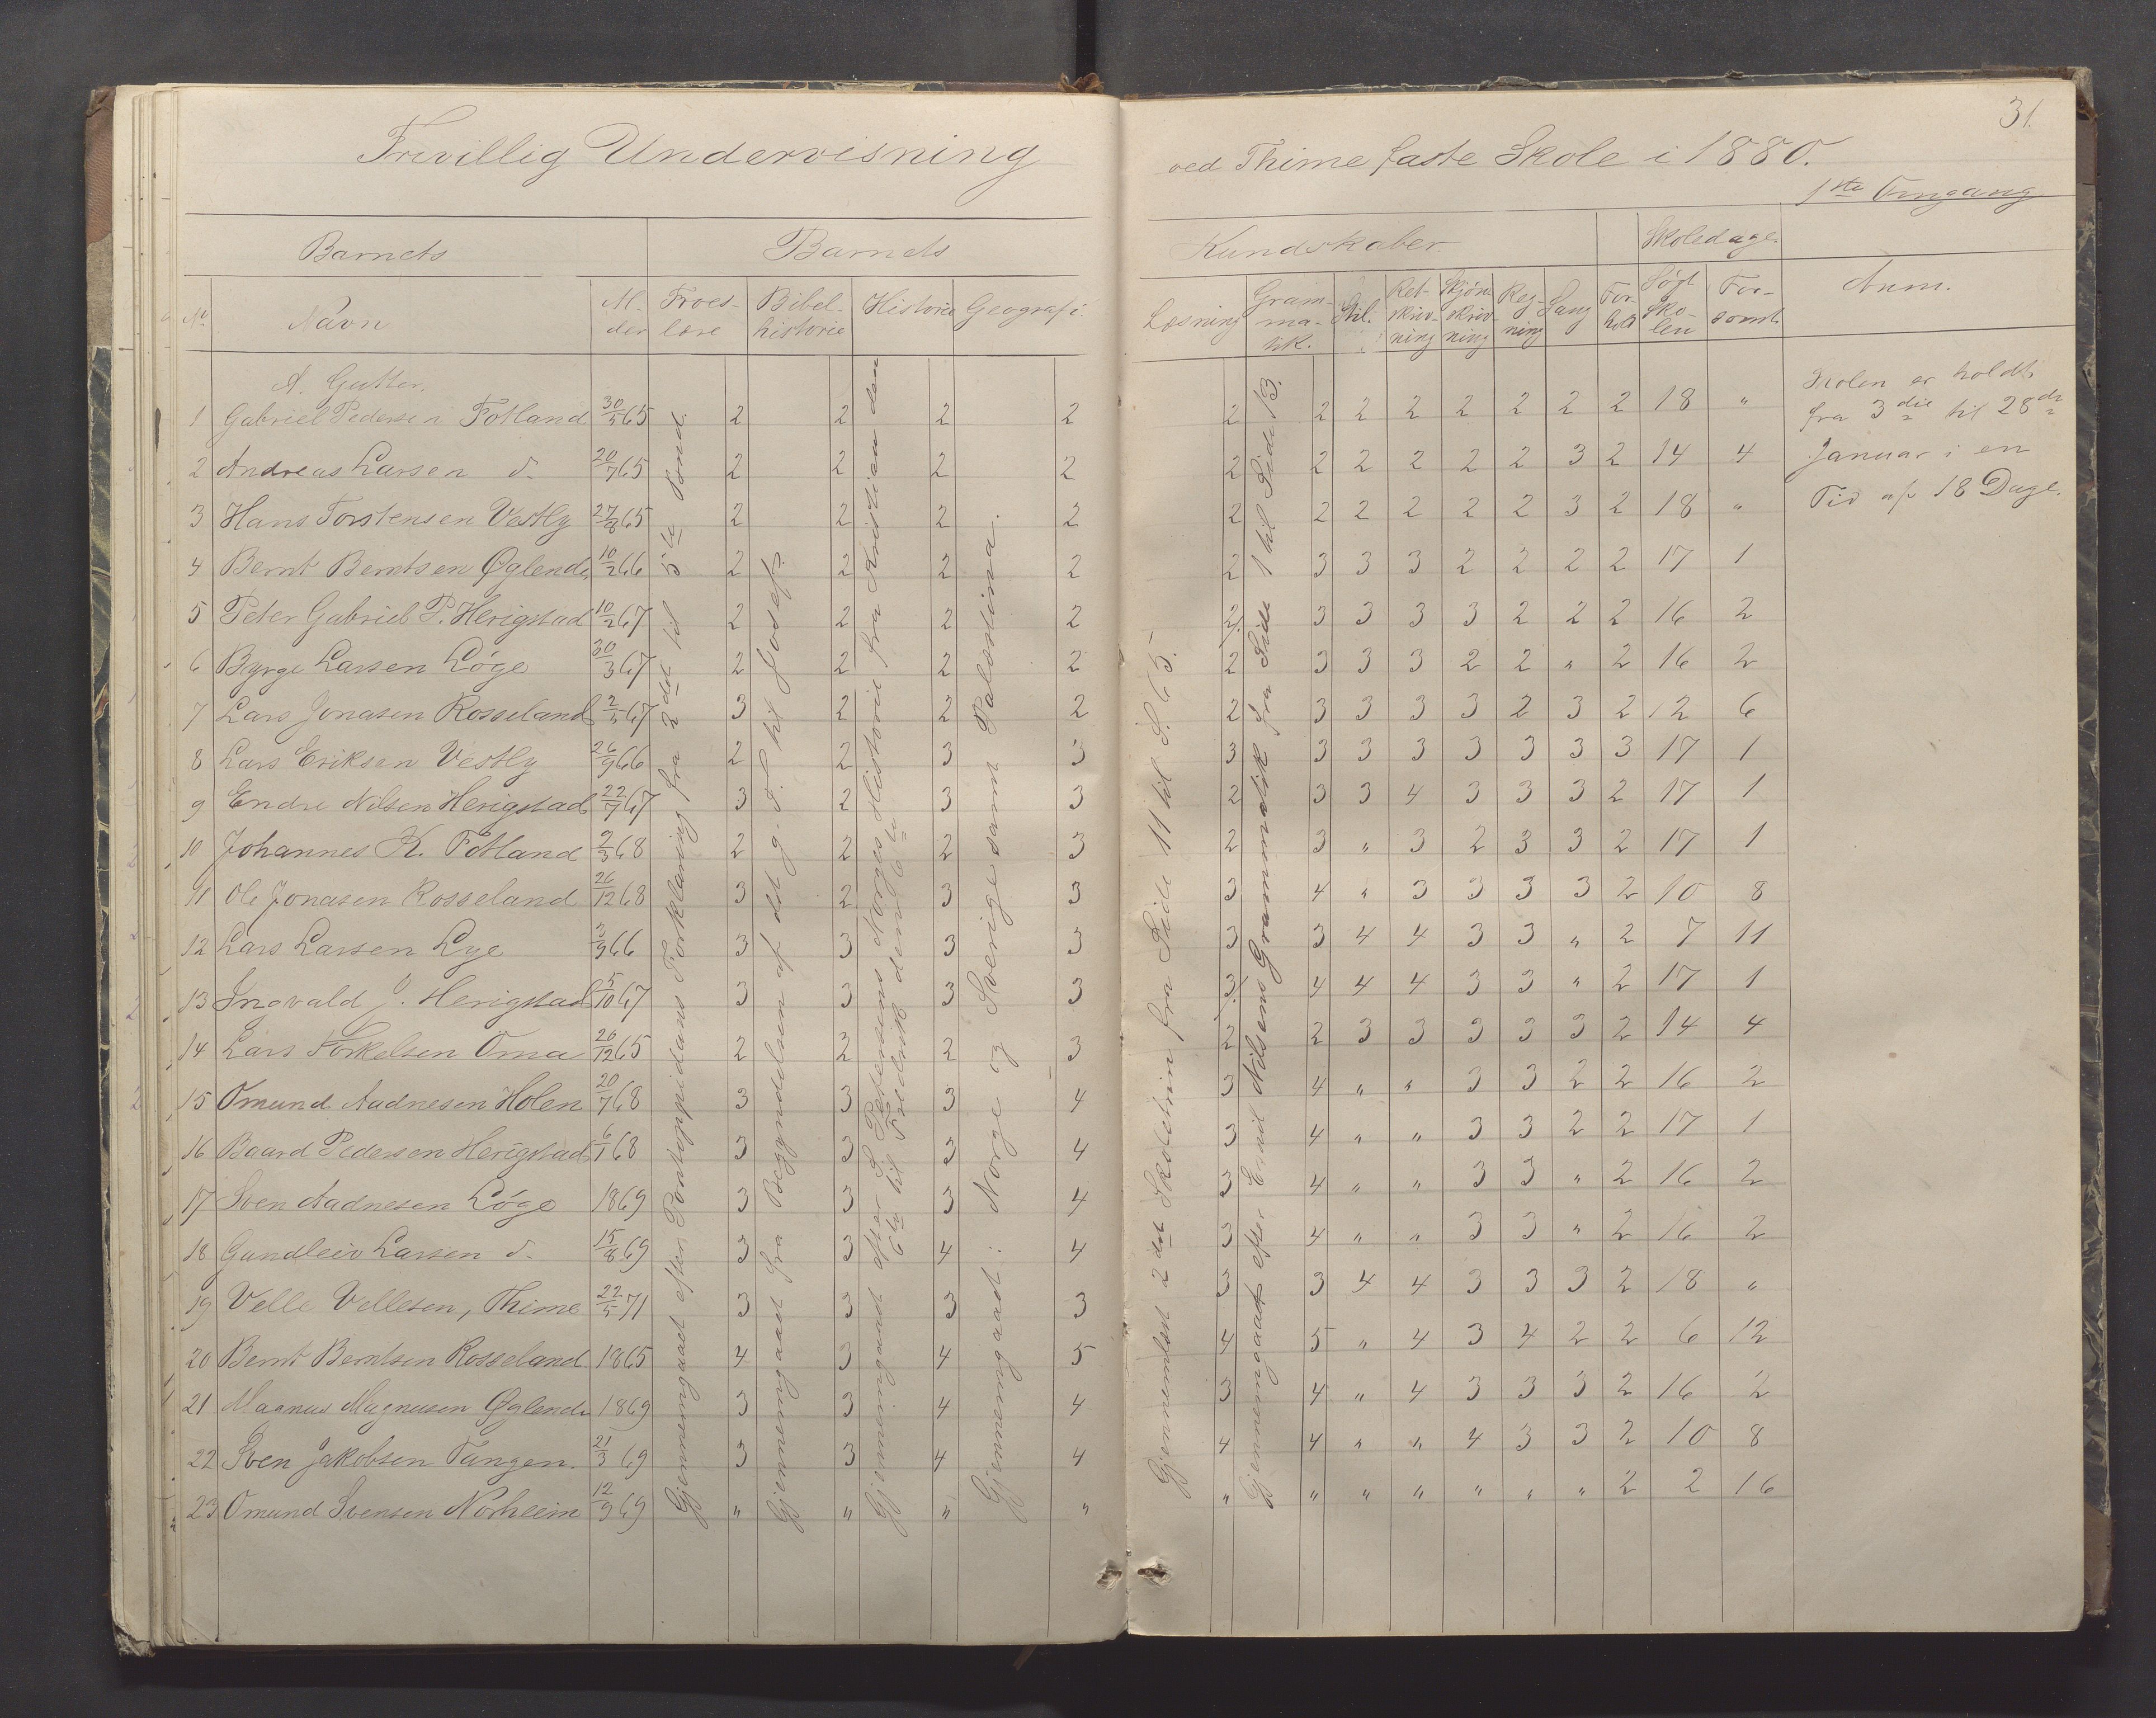 31.
Frivillig Undervisning ved Thime faste Skole i 1880.
1ste Omgang
Barnets Barnets Kundskaber. Skoledage.
No Navn Al-der Troes-lære Bibel-historie Historie Geografi. Læsning Gram-ma-tik. Stil. Ret-skriv-ning Skjøn-skriv-ning Reg-ning Sang For-hold Søgt Sko-len For-sømt. Anm.
A. Gutter.
1 Gabriel Pedersen Fotland 30/5 65 2 2 2 2 2 2 2 2 2 2 2 2 18 "
2 Andreas Larsen d. 20/7 65 2 2 2 2 2 2 2 2 2 2 3 2 14 4
3 Hans Torstensen Vestly 27/8 65 2 2 2 2 2 2 2 2 2 2 3 2 18 "
4 Bernt Berntsen Øglend 10/2 66 2 2 2 2 2 3 3 3 2 2 2 2 17 1
5 Peter Gabriel P. Herigstad 10/2 67 2 2 2 2 2 3 3 3 3 2 2 2 16 2
6 Byrge Larsen Løge 30/3 67 2 2 2 2 2 3 3 3 2 2 " 2 16 2
7 Lars Jonasen Rosseland 2/5 67 3 2 2 2 2 3 3 3 3 2 3 2 12 6
8 Lars Eriksen Vestly 26/9 66 2 2 3 3 3 3 3 3 3 3 3 3 17 1
9 Endre Nilsen Herigstad 22/7 67 3 2 3 3 2 3 3 4 3 3 3 2 17 1
10 Johannes K. Fotland 9/3 68 2 2 2 3 2 3 " 3 2 3 3 2 17 1
11 Ole Jonasen Rosseland 26/12 68 3 2 3 3 3 4 " 3 3 3 3 2 10 8
12 Lars Larsen Lye 3/9 66 3 3 3 3 3 3 4 4 3 3 " 2 7 11
13 Ingvald J. Herigstad 5/10 67 3 3 3 3 3 4 4 4 3 3 " 2 17 1
14 Lars Torkelsen Oma 20/12 65 2 2 2 3 2 2 3 3 3 3 3 2 14 4
15 Omund Aadnesen Holen 20/7 68 3 3 3 4 3 4 " " 3 3 2 2 16 2
16 Baard Pedersen Herigstad 6/1 68 3 3 3 4 3 4 " " 3 3 2 2 17 1
17 Sven Aadnesen Løge 1869 3 3 3 4 3 4 " " 3 3 " 2 16 2
18 Gundleiv Larsen d. 15/8 69 3 3 4 4 3 4 " " 3 3 " 2 16 2
19 Velle Vellesen, Thime 22/5 71 3 3 3 3 3 3 4 4 3 3 3 2 18 "
20 Bernt Berntsen Rosseland 1865 4 3 4 5 4 5 " 4 3 4 2 2 6 12
21 Magnus Magnusen Øglend 1869 3 3 4 4 3 4 " 4 3 3 3 2 16 2
22 Sven Jakobsen Tangen. 21/3 69 3 3 4 4 4 4 " " 4 3 3 2 10 8
23 Omund Svensen Norheim 12/9 69 " " " " " " " " " " " 2 2 16
Gjennemgaaet efter Pontoppidans Forklaring fra 2det til 5te Bud.
Gjennemgaaet fra Begyndelsen af det g. T. til Josef.
Gjennemgaaet efter S. Petersens Norges Historie fra Kristian den
6te til Fredrik den 6te
Gjennemgaaet: Norge og Sverige samt Palæstina.
Gjennemlæst 2det Skoletrin fra Side 11 til S. 65.
Gjennemgaaet efter Emil Nilsens Grammatik fra Side 1 til Side 13.
Skolen er holdt
fra 3die til 28de
Januar i en
Tid af 18 Dage.